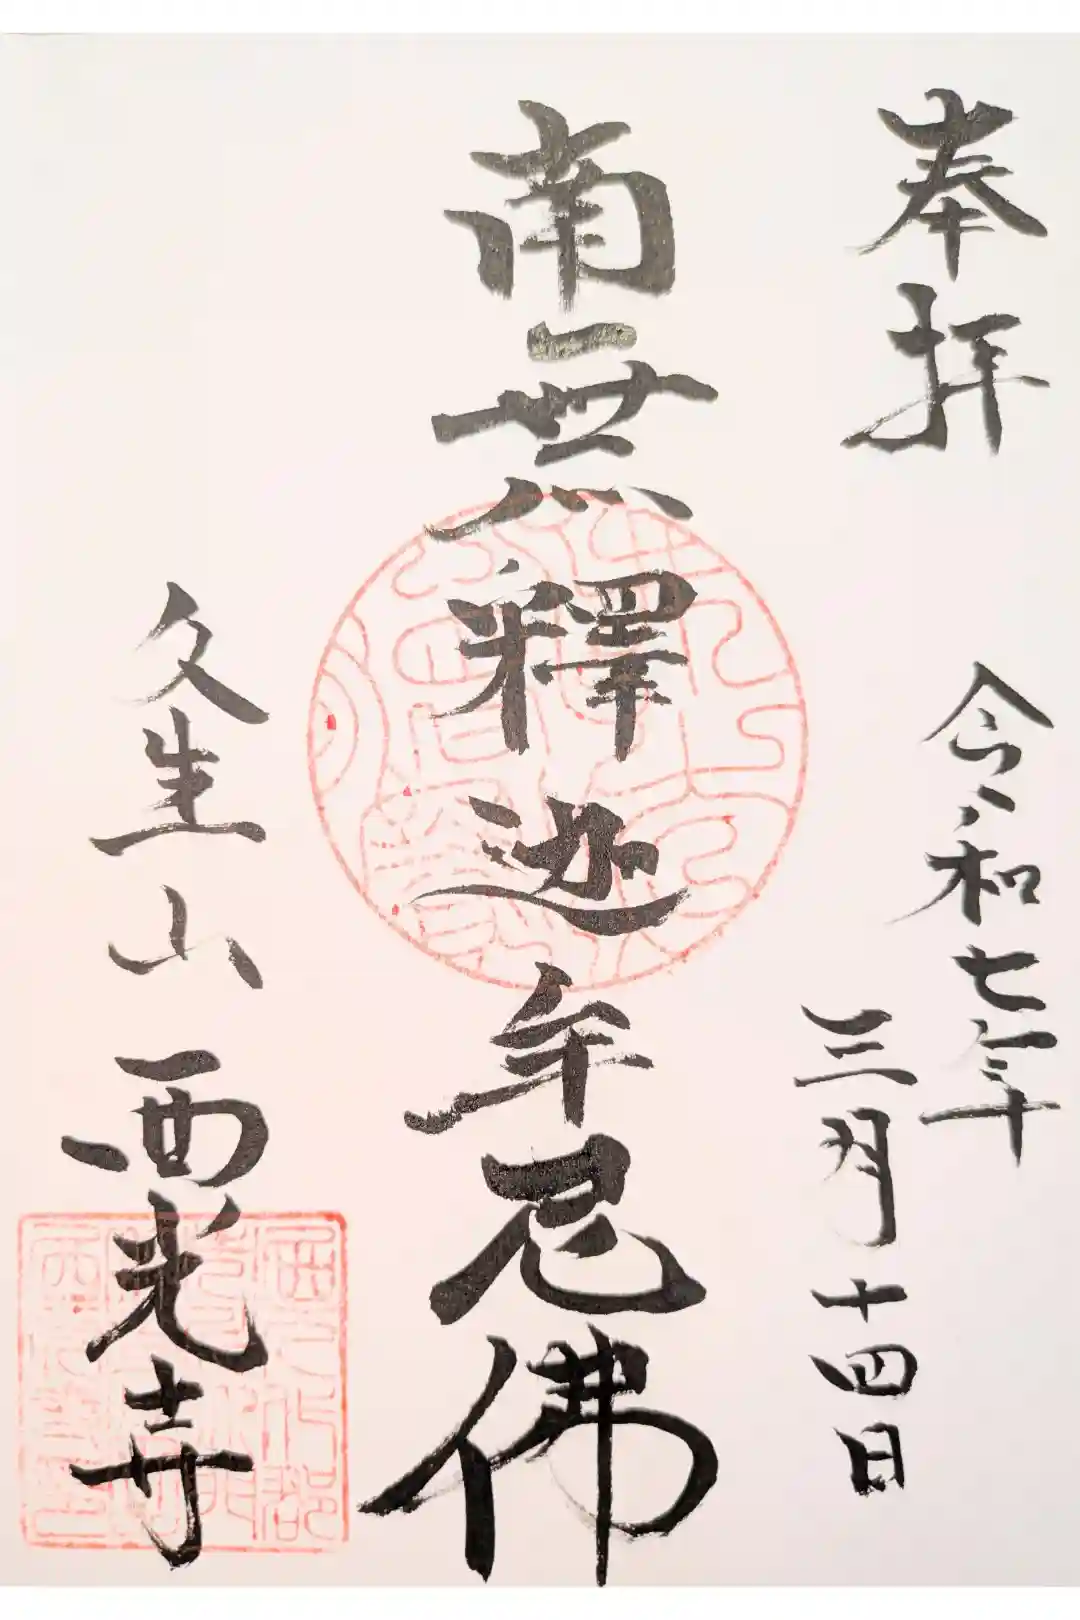 奉拝
令和七年
三月十四日
南無釋迦牟尼佛
久生山 西光寺